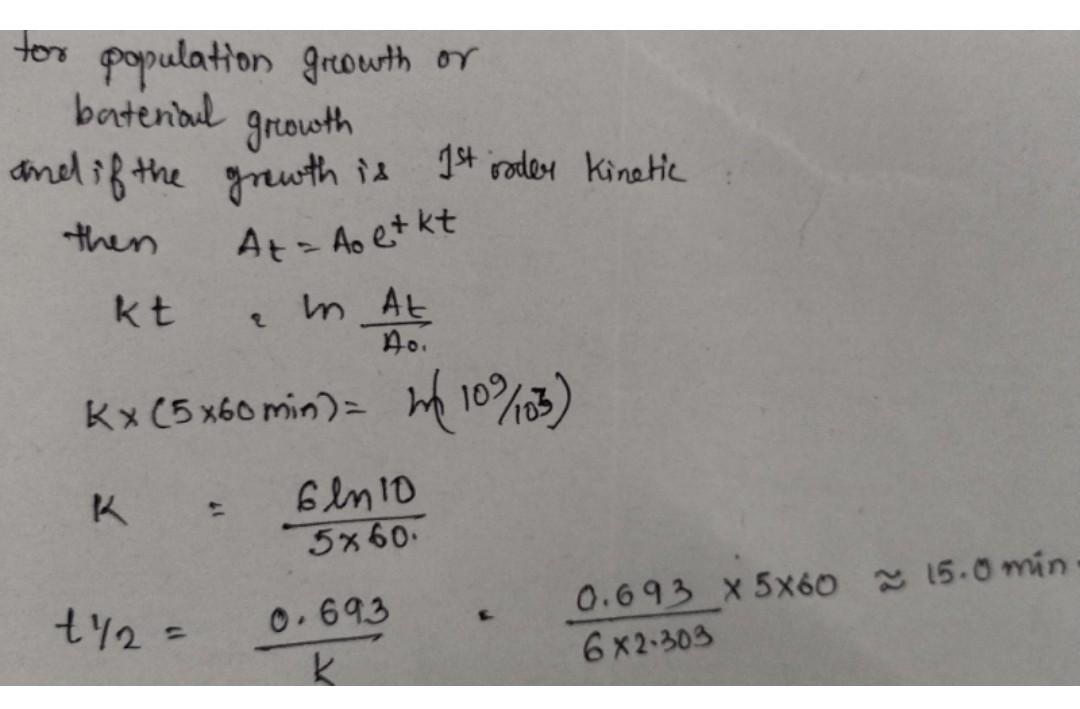 for population growth or
baterioul growth
and if the growth is 1st order Kinetic
then At = A₀ e^{+kt}
kt = ln At/A₀.
K x (5x60 min) = ln(10⁹/10³)
K = 6 ln 10 / 5x60.
t 1/2 = 0.693 / k = 0.693 / 6x2.303 x 5x60 ≈ 15.0 min.